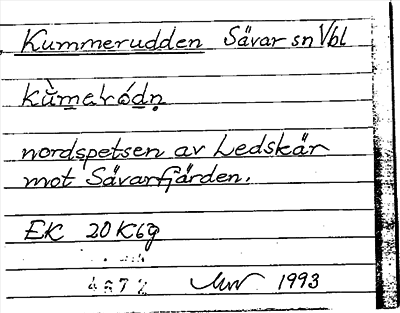 Kummerudden Sävar sn Vbl
kùməródn̥
nordspetsen av Ledskär
mot Sävarfjärden.
EK 20K6g
4872 1993